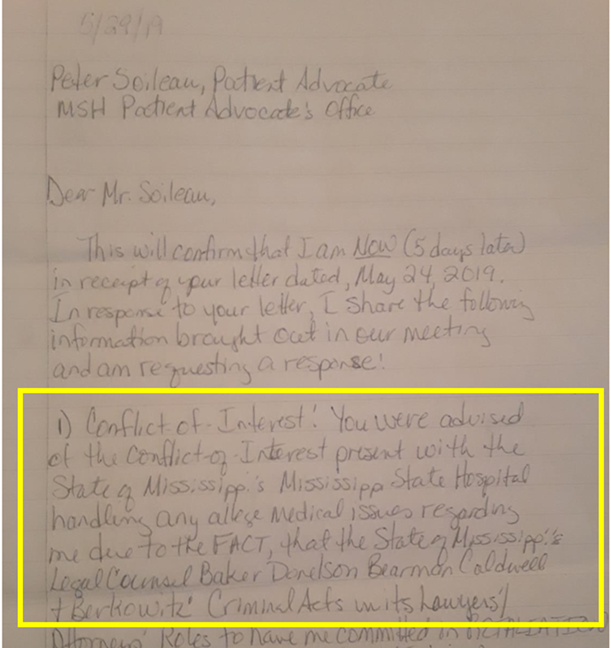 5/29/19
Peter Soileau, Patient Advocate
MSH Patient Advocate's Office
Dear Mr. Soileau,
This will confirm that I am Now (5 days later)
in receipt of your letter dated, May 24, 2019.
In response to your letter, I share the following
information brought out in our meeting
and am requesting a response!
1) Conflict-of-Interest! You were advised
of the Conflict-of-Interest present with the
State of Mississippi's Mississippi State Hospital
handling any allege medical issues regarding
me due to the FACT, that the State of Mississippi's
Legal Counsel Baker Donelson Bearman Caldwell
+ Berkowitz' Criminal Acts in its Lawyers'/
Attorneys' Roles to have me committed in RETALIATION